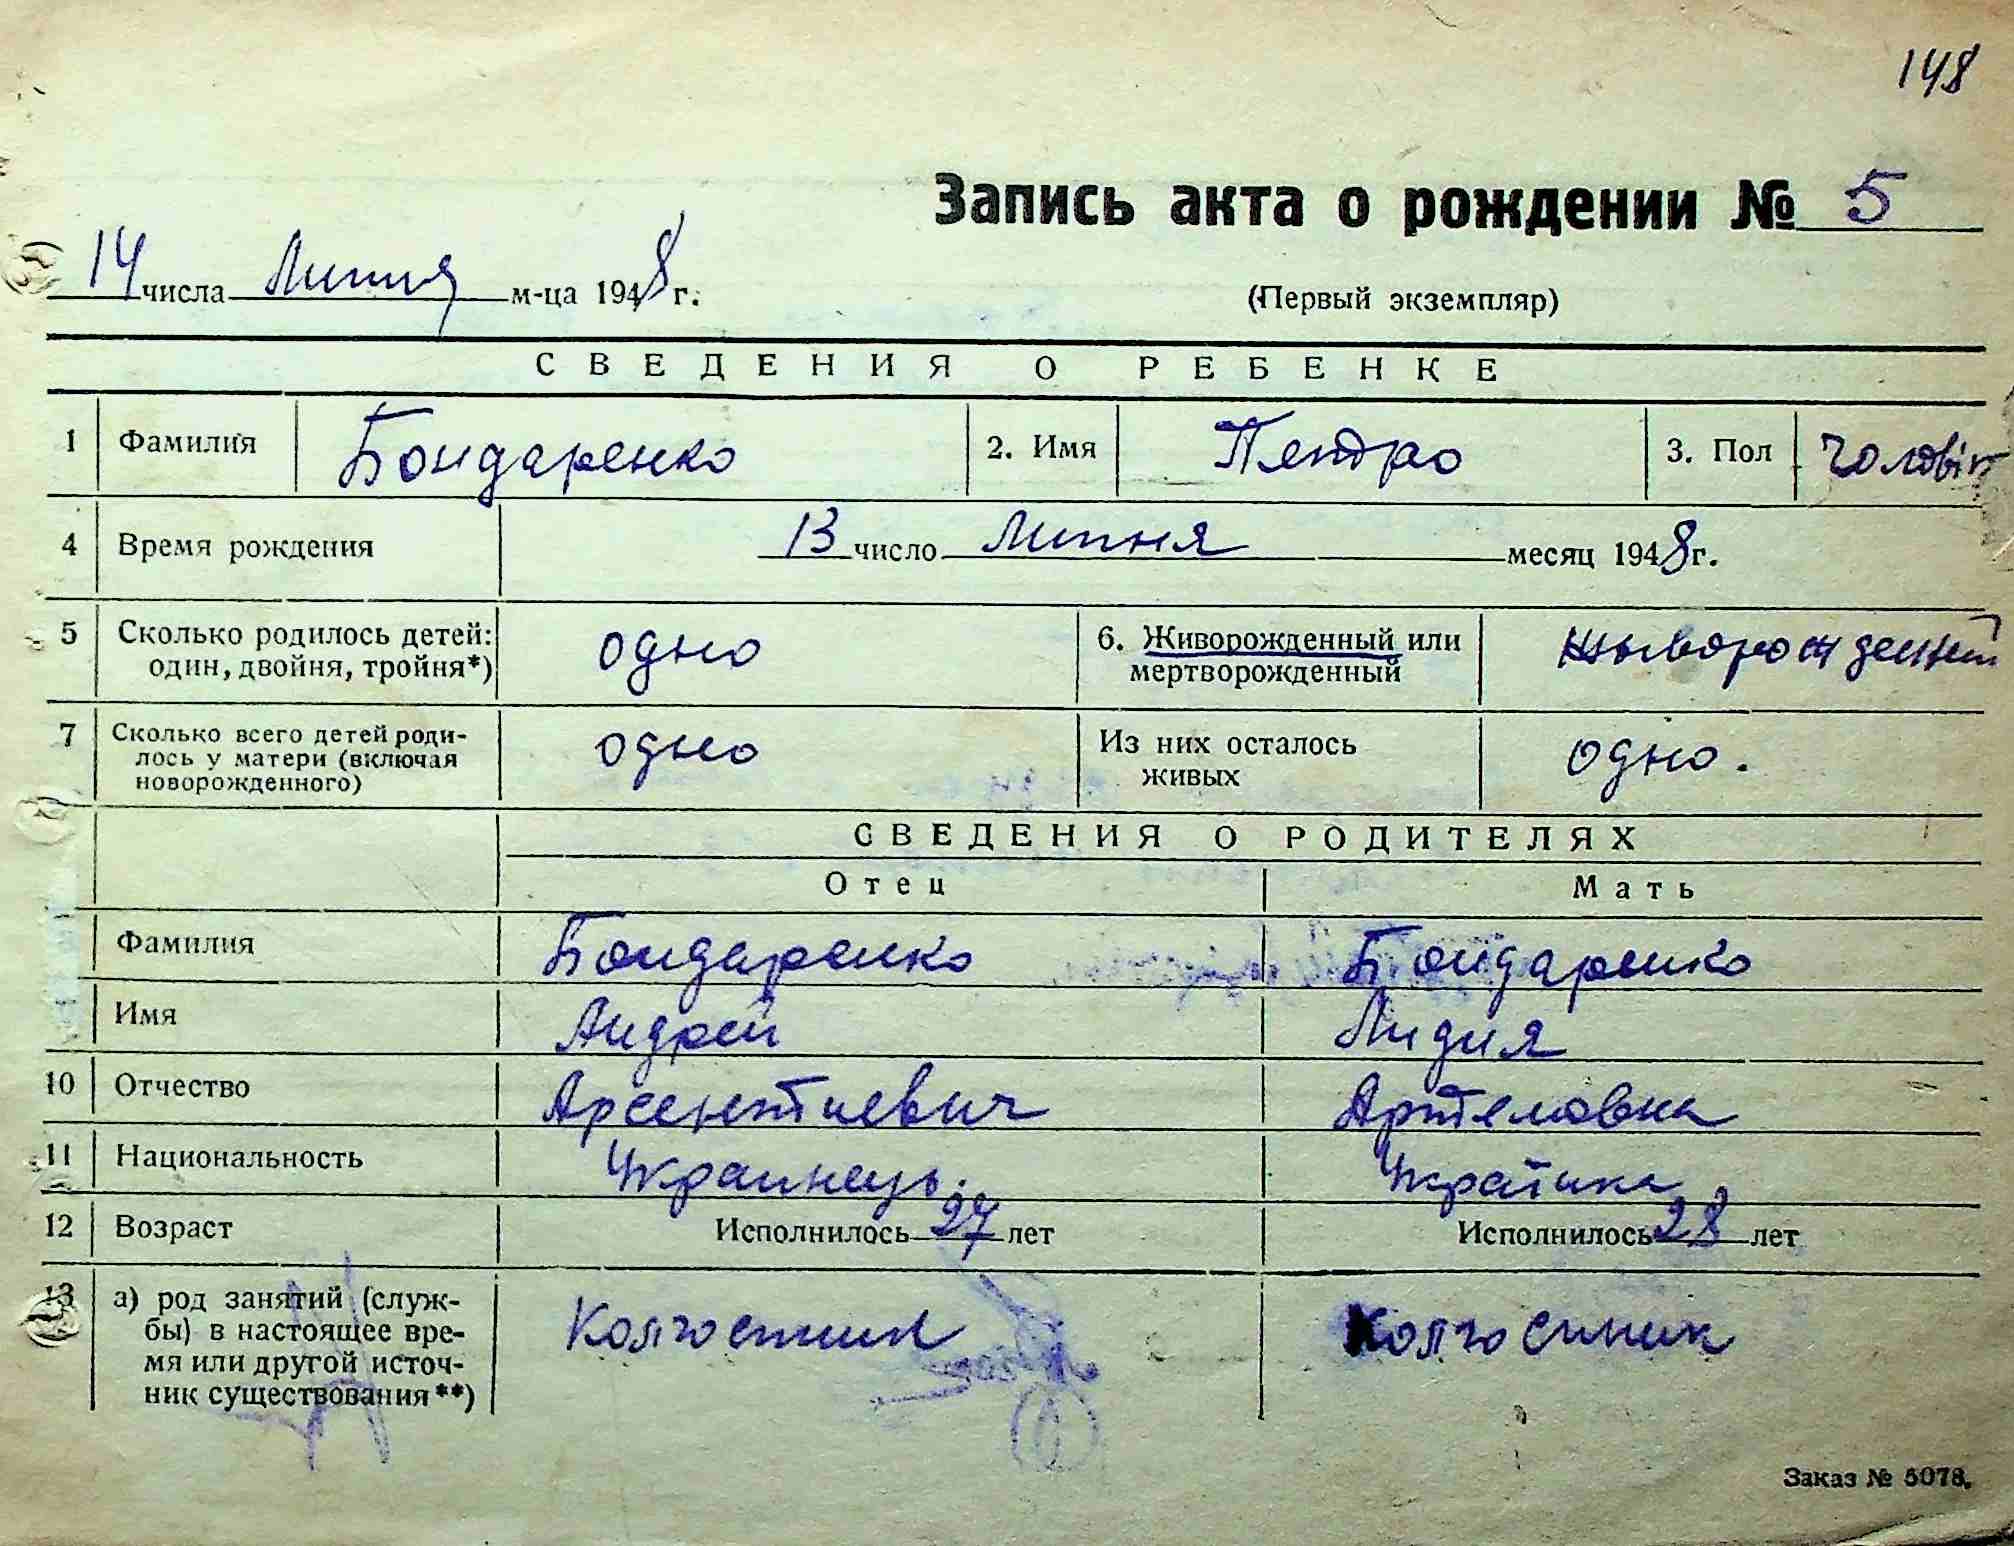 148
Запись акта о рождении № 5
14 числа Липня м-ца 1948 г.
(Первый экземпляр)
СВЕДЕНИЯ О РЕБЕНКЕ
1 Фамилия Бондаренко 2. Имя Пětро 3. Пол чоловіч
4 Время рождения 13 число Липня месяц 1948 г.
5 Сколько родилось детей: одно 6. Живорожденный или жыворожденый
один, двойня, тройня*) мертворожденный
7 Сколько всего детей роди- одно Из них осталось одно.
лось у матери (включая живых
новорожденного)
СВЕДЕНИЯ О РОДИТЕЛЯХ
Отец Мать
Фамилия Бондаренко Бондаренко
Имя Андрей Лидия
10 Отчество Арсентиевич Артемовна
11 Национальность Украинець. Украінка
12 Возраст Исполнилось 27 лет Исполнилось 28 лет
13 а) род занятий (служ- Колгоспник Колгоспник
бы) в настоящее вре-
мя или другой источ-
ник существования**)
Заказ № 5078.